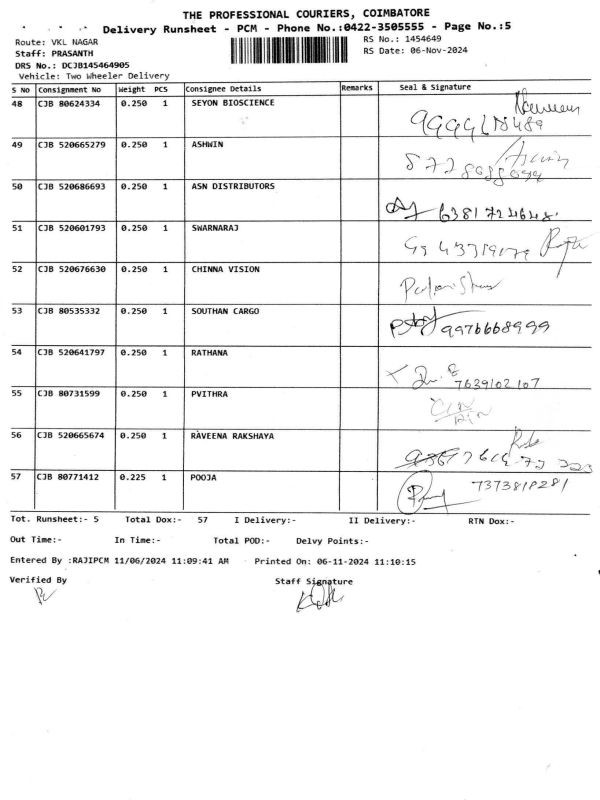 THE PROFESSIONAL COURIERS, COIMBATORE
Delivery Runsheet - PCM - Phone No.:0422-3505555 - Page No.:5
Route: VKL NAGAR
RS No.: 1454649
Staff: PRASANTH
RS Date: 06-Nov-2024
DRS No.: DCJB145464905
Vehicle: Two Wheeler Delivery
S No Consignment No Weight PCS Consignee Details Remarks Seal & Signature
48 CJB 80624334 0.250 1 SEYON BIOSCIENCE
49 CJB 520665279 0.250 1 ASHWIN
50 CJB 520686693 0.250 1 ASN DISTRIBUTORS
51 CJB 520601793 0.250 1 SWARNARAJ
52 CJB 520676630 0.250 1 CHINNA VISION
53 CJB 80535332 0.250 1 SOUTHAN CARGO 9976668999
54 CJB 520641797 0.250 1 RATHANA 7639102107
55 CJB 80731599 0.250 1 PVITHRA
56 CJB 520665674 0.250 1 RAVEENA RAKSHAYA
57 CJB 80771412 0.225 1 POOJA 7373818281
Tot. Runsheet:- 5 Total Dox:- 57 I Delivery:- II Delivery:- RTN Dox:-
Out Time:- In Time:- Total POD:- Delvy Points:-
Entered By :RAJIPCM 11/06/2024 11:09:41 AM Printed On: 06-11-2024 11:10:15
Verified By Staff Signature